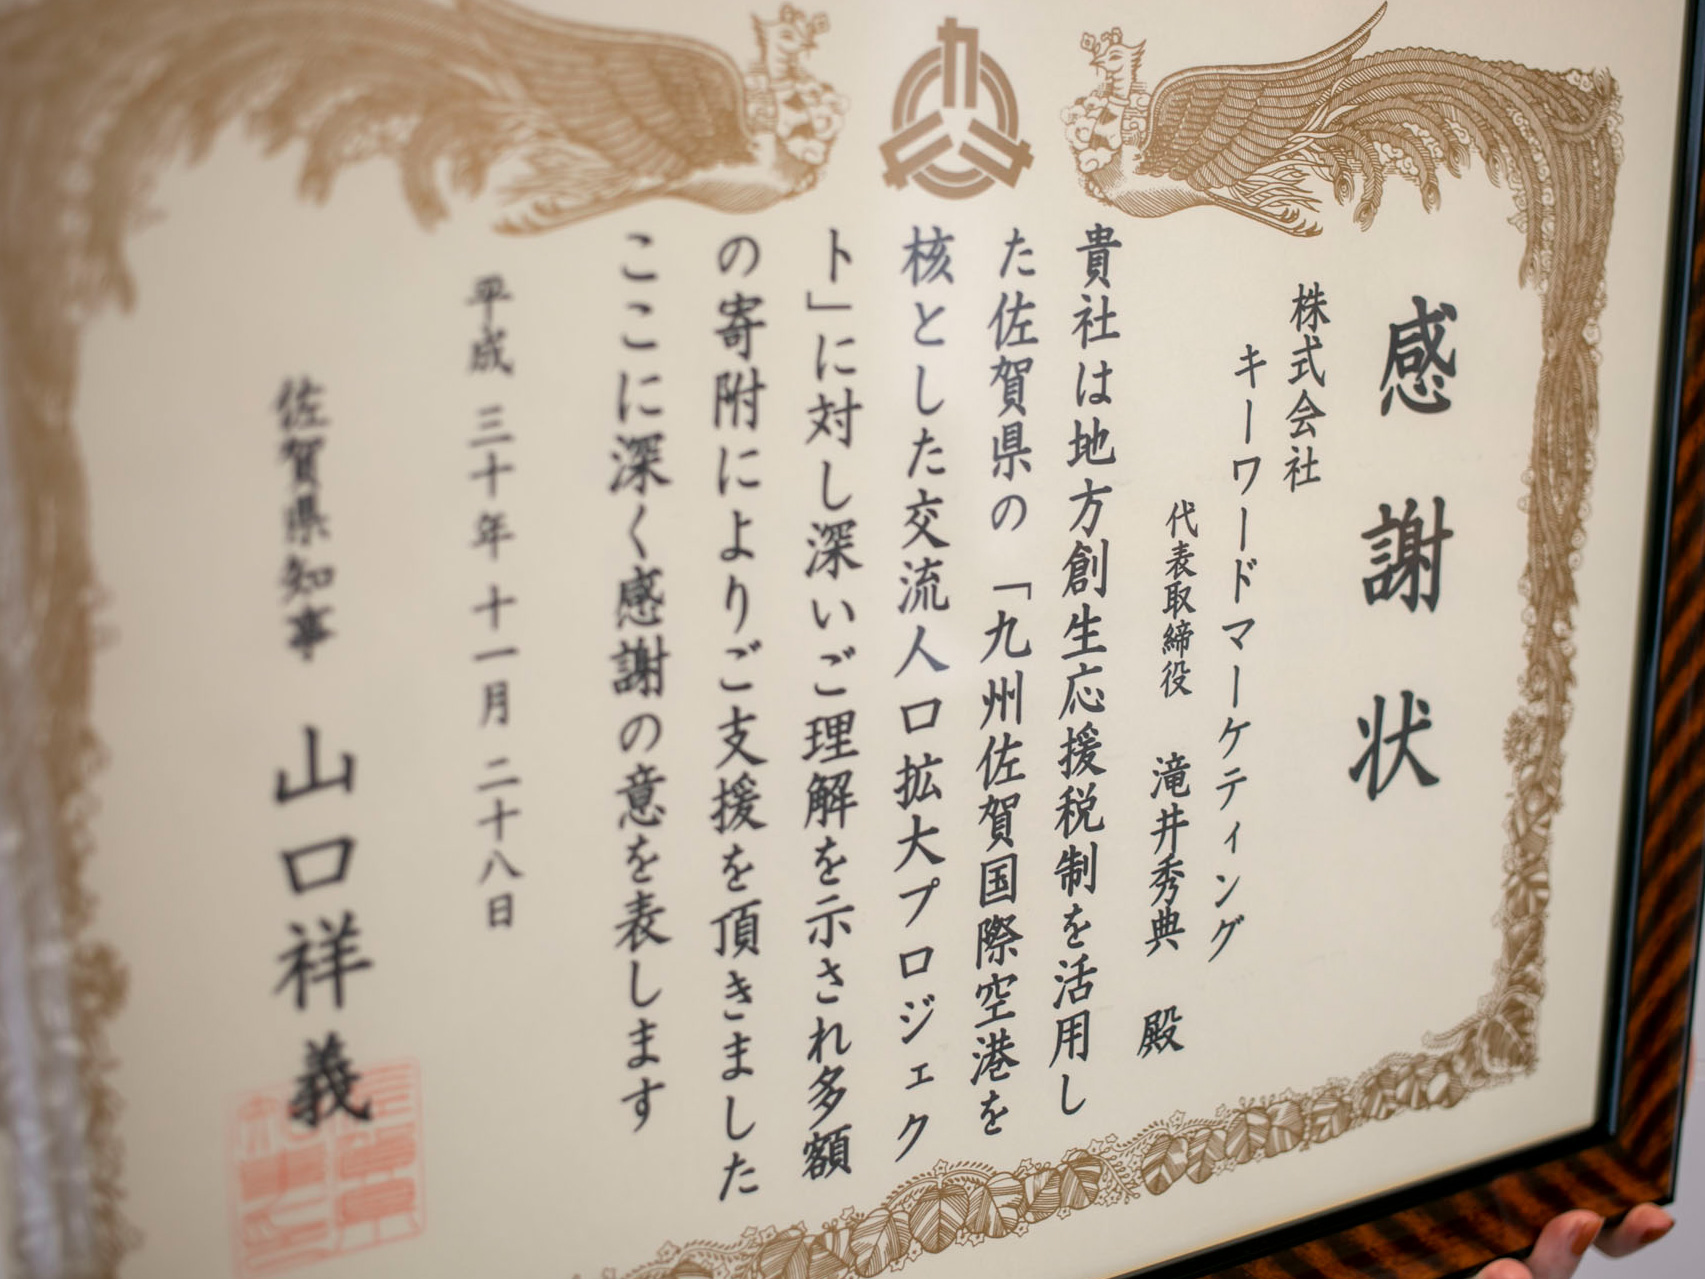 感謝状
株式会社
キーワードマーケティング
代表取締役 滝井秀典 殿
貴社は地方創生応援税制を活用し
た佐賀県の「九州佐賀国際空港を
核とした交流人口拡大プロジェク
ト」に対し深いご理解を示され多額
の寄附によりご支援を頂きました
ここに深く感謝の意を表します
平成三十年十一月二十八日
佐賀県知事 山口祥義